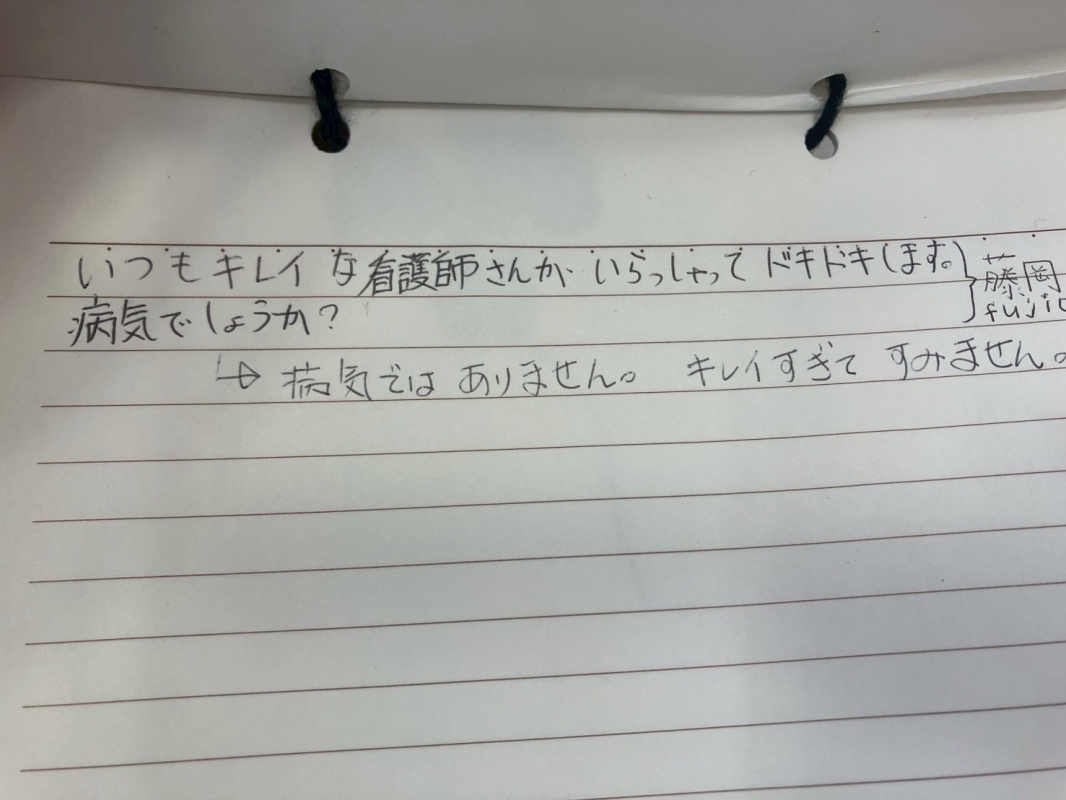 いつもキレイな看護師さんがいらっしゃってドキドキします。}藤岡
病気でしょうか? fuji
→病気ではありません。 キレイすぎて すみません。